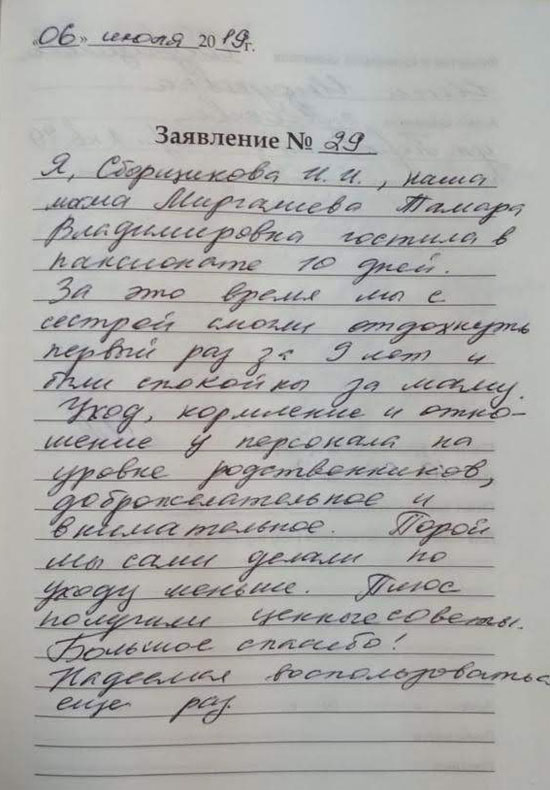 «06» июля 2019 г.
Заявление № 29
Я, Сборщикова И. И., наша
мама Миргалиева Тамара
Владимировна гостила в
пансионате 10 дней.
За это время мы с
сестрой смогли отдохнуть
первый раз за 9 лет и
были спокойны за маму.
Уход, кормление и отно-
шение у персонала на
уровне родственников,
доброжелательное и
внимательное. Порой
мы сами делали по
уходу меньше. Плюс
получили ценные советы.
Большое спасибо!
Надеемся воспользоваться
еще раз.